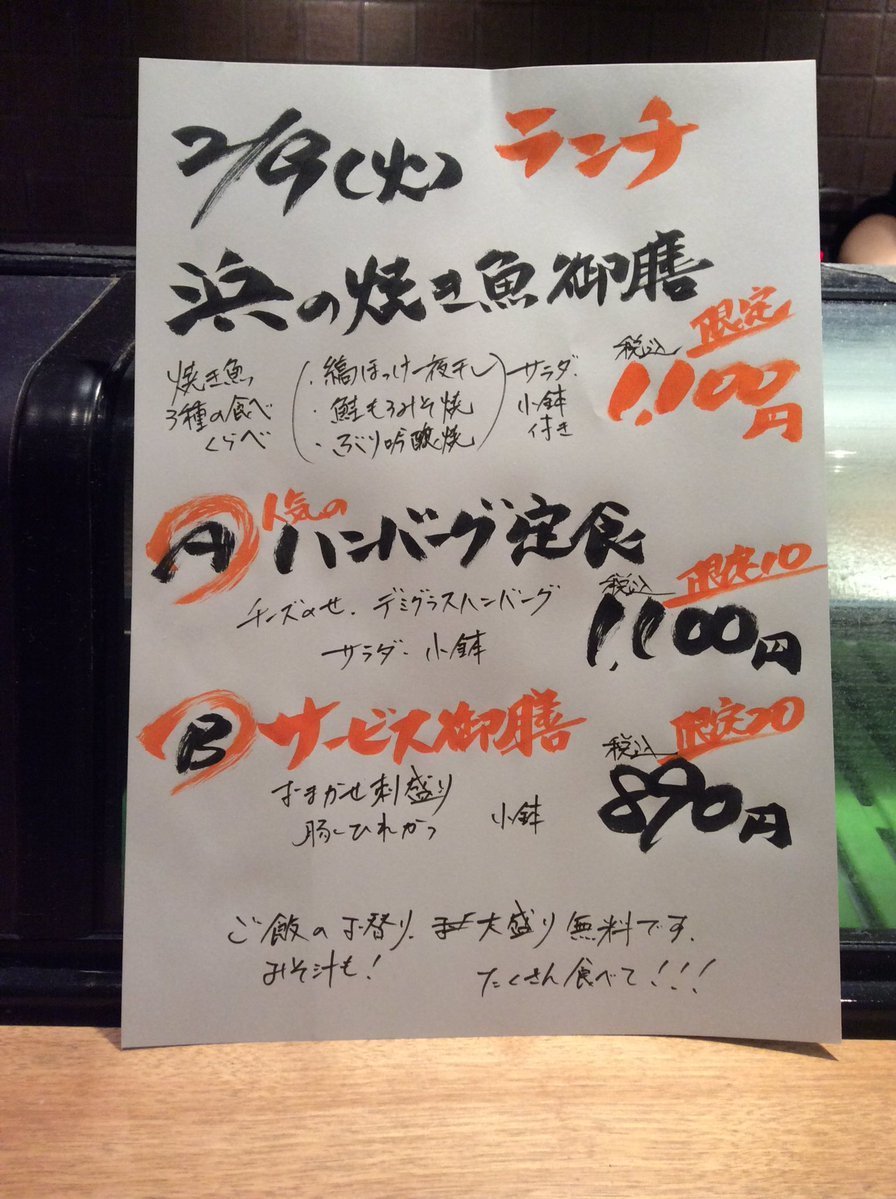 2/9(火) ランチ
浜の焼き魚御膳
限定
税込
1,100円
焼き魚
3種の食べ
くらべ
・縞ほっけ一夜干し
・鮭もろみそ焼
・ぶり吟醸焼
サラダ・
小鉢
付き
A 人気の ハンバーグ定食
限定10
税込
1,100円
チーズのせ、デミグラスハンバーグ
サラダ・小鉢
B サービス御膳
限定20
税込
890円
おまかせ刺盛り
豚ひれかつ 小鉢
ご飯のお替り、大盛り無料です、
みそ汁も! たくさん食べて!!!